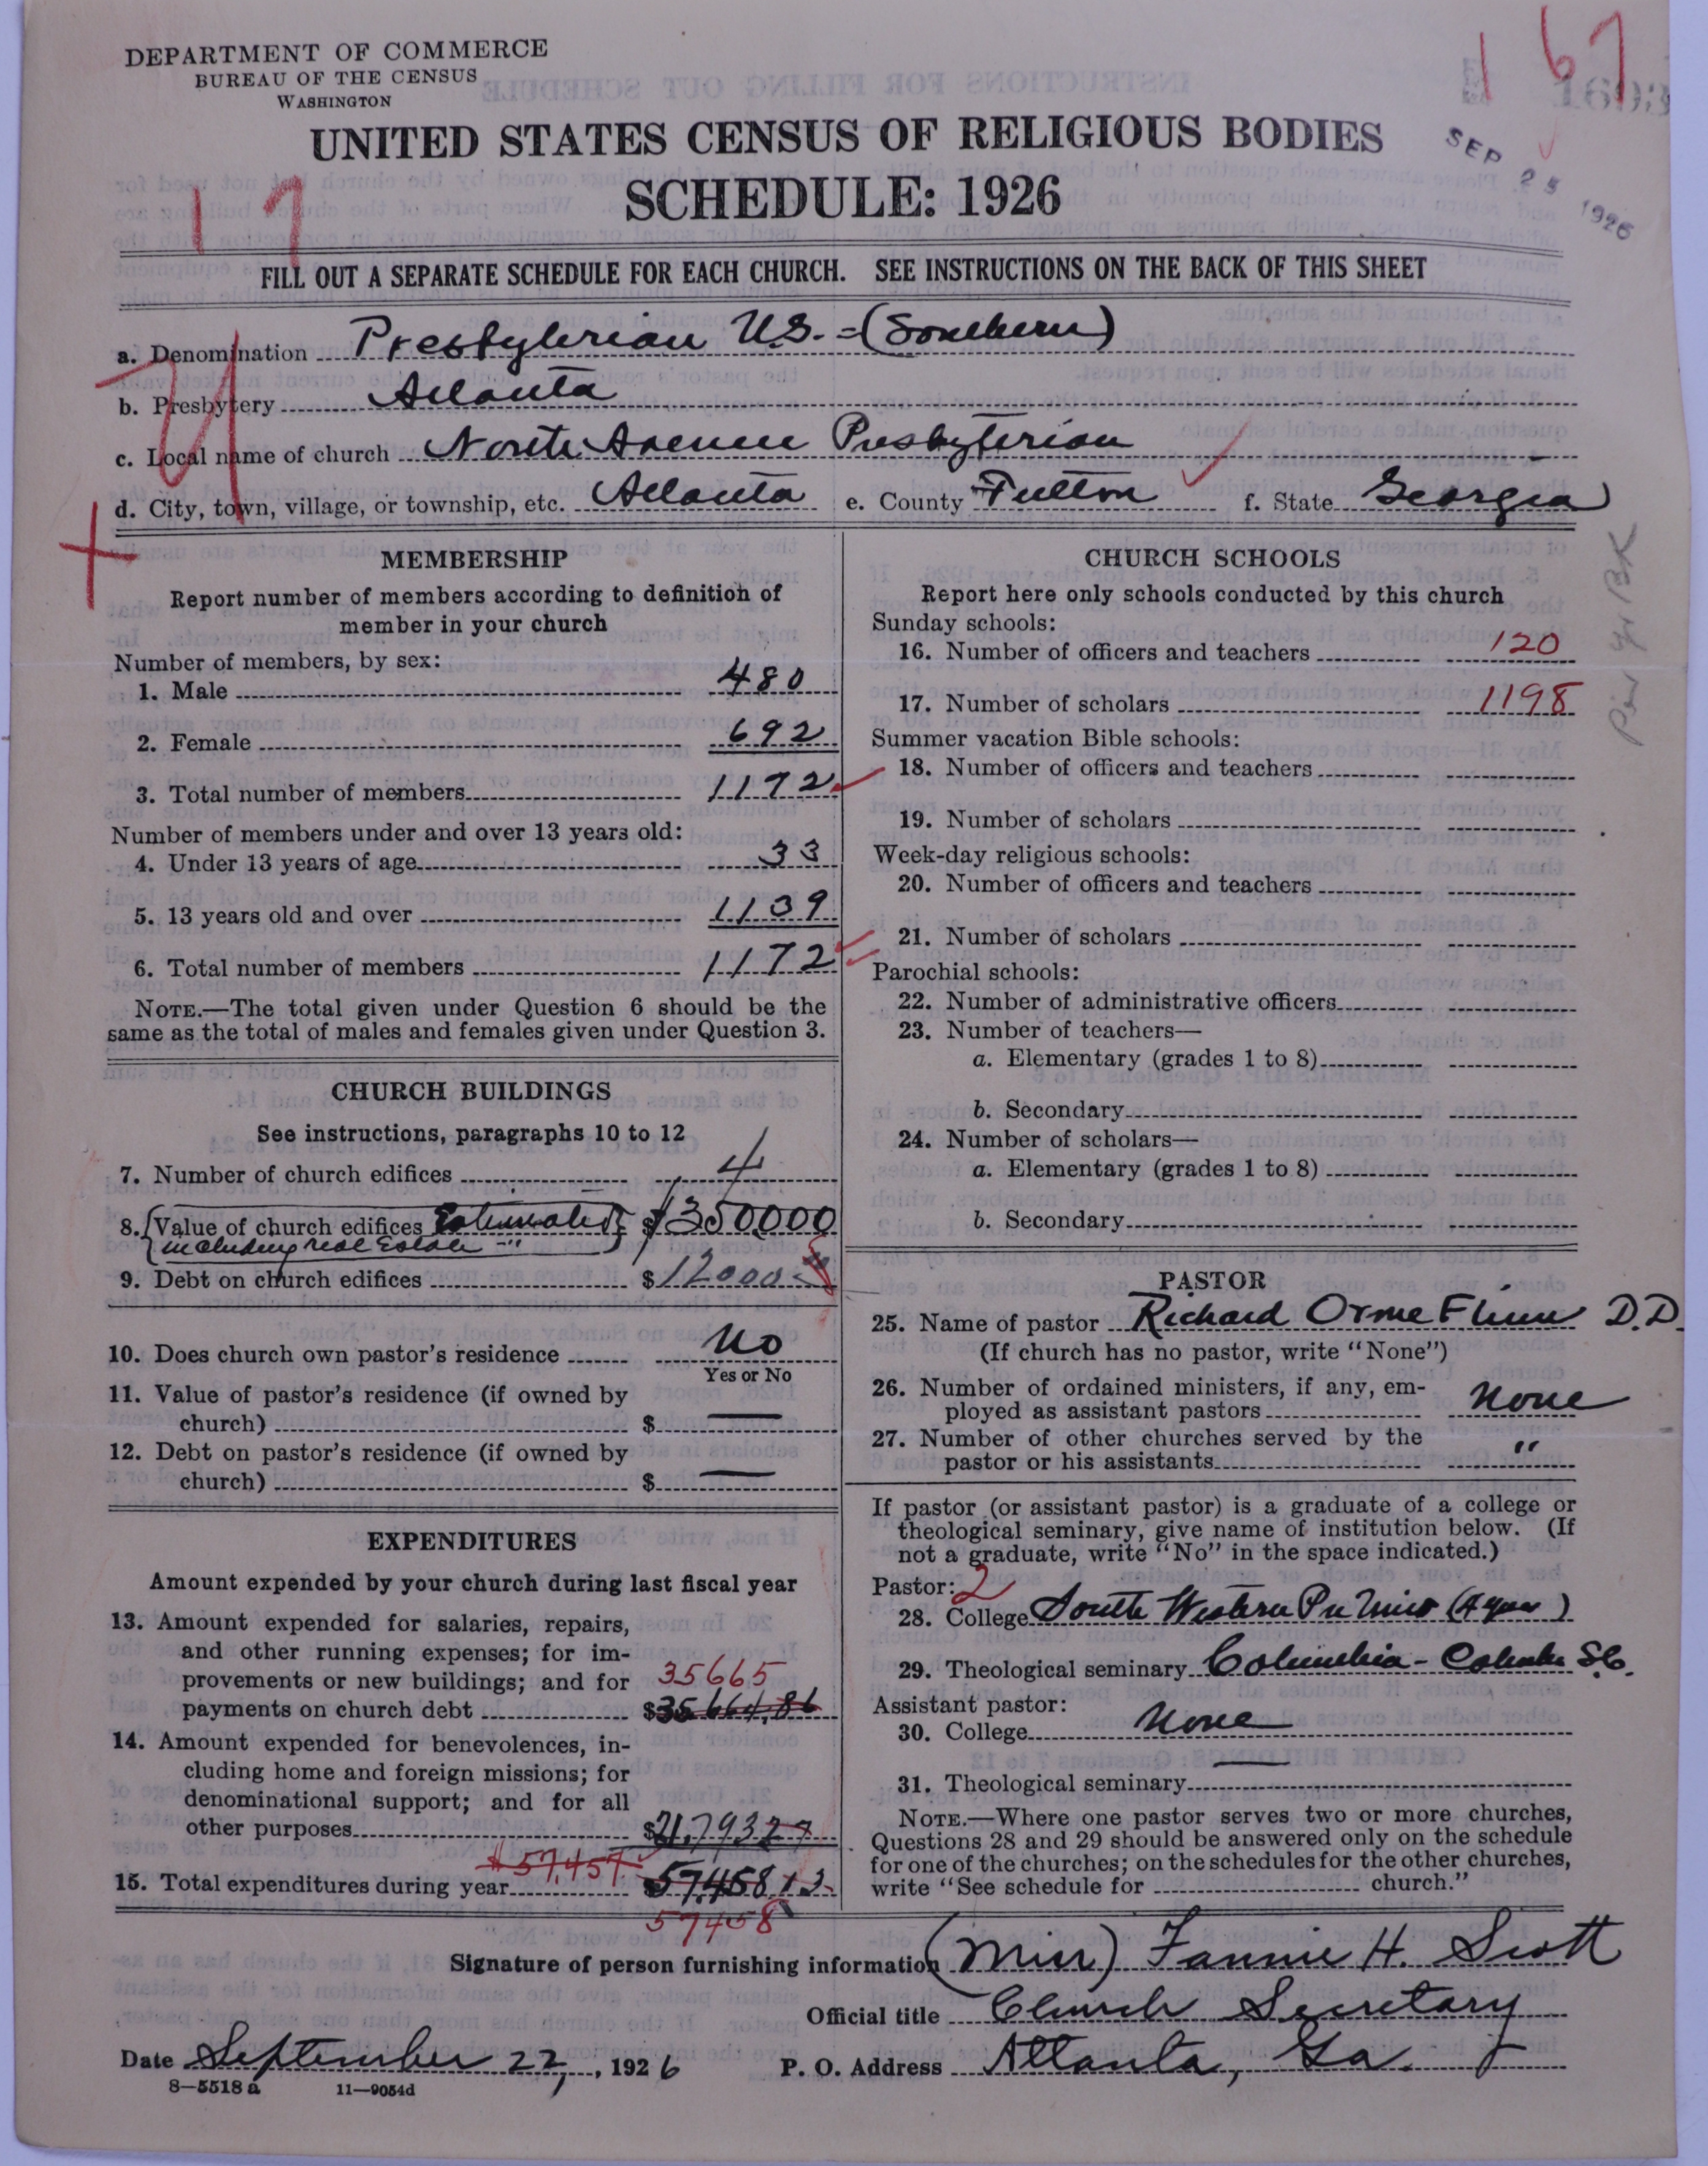 DEPARTMENT OF COMMERCE
BUREAU OF THE CENSUS
WASHINGTON
167
1603
UNITED STATES CENSUS OF RELIGIOUS BODIES
SEP 25 1926
SCHEDULE: 1926
17
FILL OUT A SEPARATE SCHEDULE FOR EACH CHURCH. SEE INSTRUCTIONS ON THE BACK OF THIS SHEET
a. Denomination Presbyterian U.S. = (Southern)
b. Presbytery Atlanta
c. Local name of church North Avenue Presbyterian
d. City, town, village, or township, etc. Atlanta e. County Fulton f. State Georgia
MEMBERSHIP
Report number of members according to definition of
member in your church
Number of members, by sex:
1. Male 480
2. Female 692
3. Total number of members 1172
Number of members under and over 13 years old:
4. Under 13 years of age 33
5. 13 years old and over 1139
6. Total number of members 1172
NOTE.—The total given under Question 6 should be the
same as the total of males and females given under Question 3.
CHURCH BUILDINGS
See instructions, paragraphs 10 to 12
7. Number of church edifices 4
8. Value of church edifices Estimated $350000
including real Estate
9. Debt on church edifices $12000
10. Does church own pastor's residence No
Yes or No
11. Value of pastor's residence (if owned by
church) $ —
12. Debt on pastor's residence (if owned by
church) $ —
EXPENDITURES
Amount expended by your church during last fiscal year
13. Amount expended for salaries, repairs,
and other running expenses; for im-
provements or new buildings; and for 35665
payments on church debt $35664,86
14. Amount expended for benevolences, in-
cluding home and foreign missions; for
denominational support; and for all
other purposes $21,79327
$57,457
15. Total expenditures during year $57,45813
57458
CHURCH SCHOOLS
Report here only schools conducted by this church
Sunday schools:
16. Number of officers and teachers 120
17. Number of scholars 1198
Summer vacation Bible schools:
18. Number of officers and teachers
19. Number of scholars
Week-day religious schools:
20. Number of officers and teachers
21. Number of scholars
Parochial schools:
22. Number of administrative officers
23. Number of teachers—
a. Elementary (grades 1 to 8)
b. Secondary
24. Number of scholars—
a. Elementary (grades 1 to 8)
b. Secondary
PASTOR
25. Name of pastor Richard Orme Flinn D.D.
(If church has no pastor, write "None")
26. Number of ordained ministers, if any, em-
ployed as assistant pastors None
27. Number of other churches served by the
pastor or his assistants "
If pastor (or assistant pastor) is a graduate of a college or
theological seminary, give name of institution below. (If
not a graduate, write "No" in the space indicated.)
Pastor: 2
28. College South Western Pr Univ (4 year)
29. Theological seminary Columbia - S.C.
Assistant pastor:
30. College None
31. Theological seminary —
NOTE.—Where one pastor serves two or more churches,
Questions 28 and 29 should be answered only on the schedule
for one of the churches; on the schedules for the other churches,
write "See schedule for church."
Signature of person furnishing information (Miss) Fannie H. Scott
Official title Church Secretary
Date September 22, 1926 P. O. Address Atlanta, Ga.
8—5518 a 11—9054d